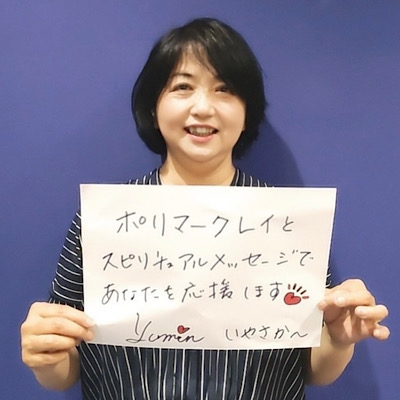 ポリマークレイと
スピリチュアルメッセージで
あなたを応援します
Yumin いやさか〜